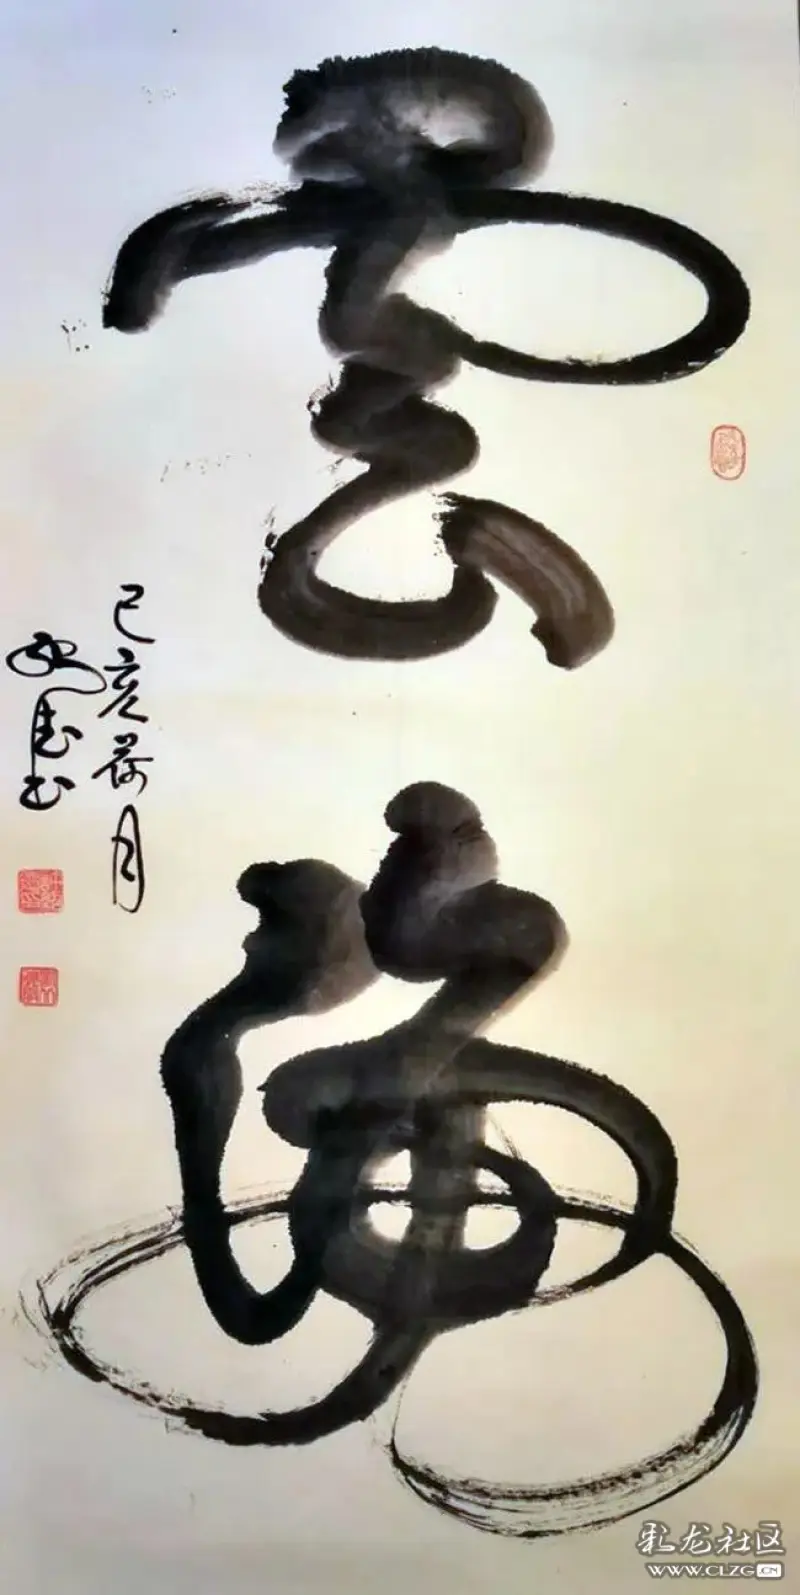 雲海
己亥荷月
书
彩龙社区
WWW.CLZG.CN